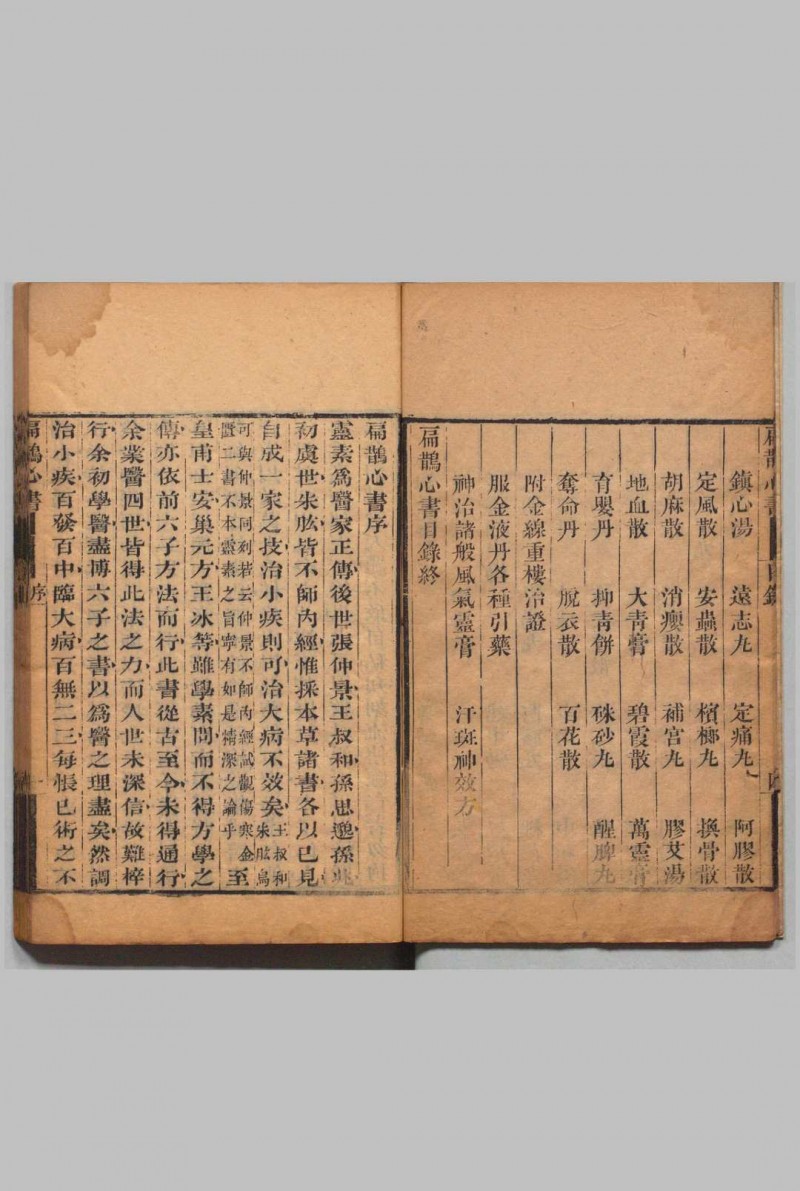 扁鵲心書 目錄
鎮心湯 遠志丸 定痛丸 阿膠散
定風散 安蟲散 檳榔丸 換骨散
胡麻散 消癭散 補宮丸 膠艾湯
地血散 大青膏 碧霞散 萬靈膏
育嬰丹 抑青餅 硃砂丸 醒脾丸
奪命丹 脫衣散 百花散
附金線重樓治證
服金液丹各種引藥
神治諸般風氣靈膏 汗斑神效方
扁鵲心書目錄終
扁鵲心書序
靈素爲醫家正傳後世張仲景王叔和孫思邈孫兆
初虞世朱肱皆不師內經惟採本草諸書各以己見
自成一家之技治小疾則可治大病不效矣王叔和朱肱烏
可與仲景同列若云仲景不師內經試觀傷寒金
匱二書不本靈素之旨寧有如是精深之論乎至
皇甫士安巢元方王冰等雖學素問而不得方學之
傳亦依前六子方法而行此書從古至今未得通行
余業醫四世皆得此法之力而人世未深信故難梓
行余初學醫盡博六子之書以爲醫之理盡矣然調
治小疾百發百中臨大病百無二三每悵己術之不
扁鵲心書 序 一